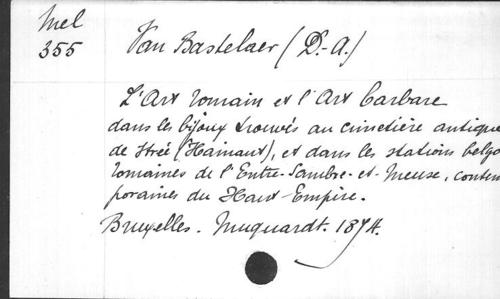 Mel
355
Van Bastelaer (D.-A.)
L'Art romain et l'Art barbare
dans les bijoux trouvés au cimetière antique
de Strée (Hainaut), et dans les stations belgo
romaines de l'Entre-Sambre-et-Meuse, contem
poraines du Haut-Empire.
Bruxelles. Muquardt. 1874.